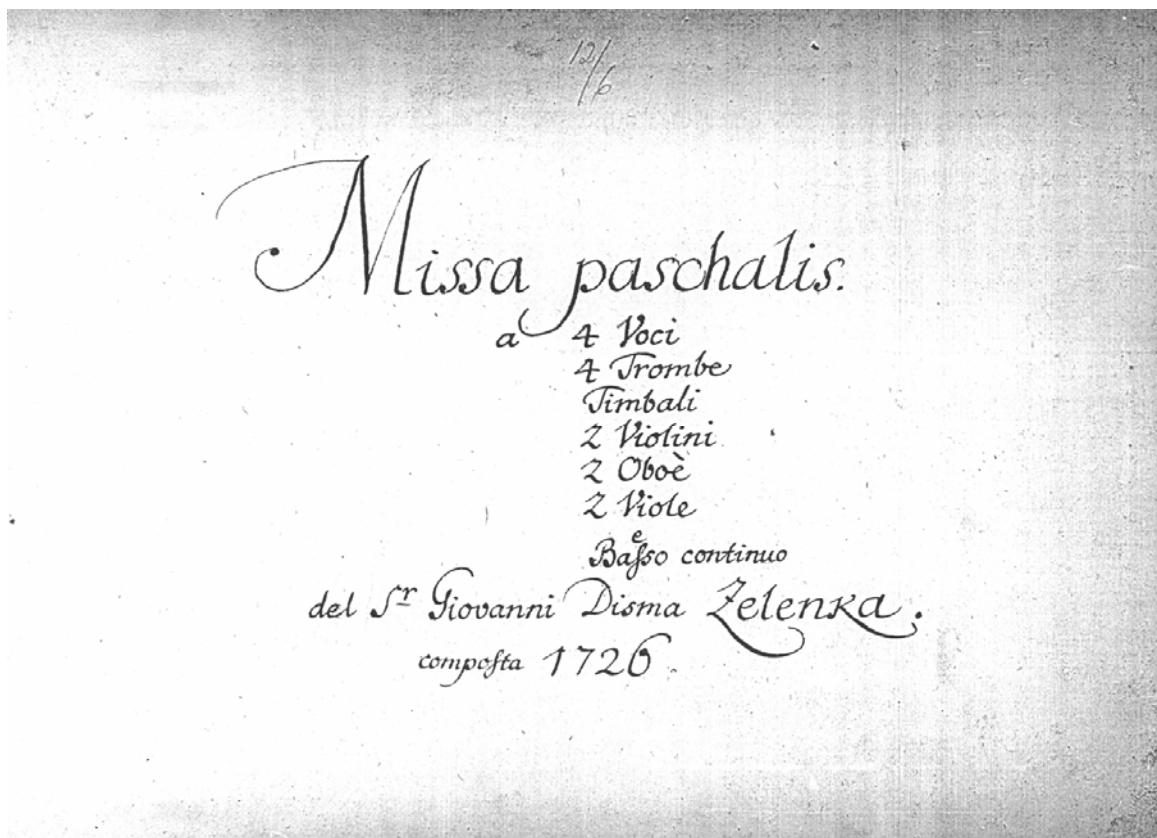 12/6
Missa paschalis.
a 4 Voci
4 Trombe
Timbali
2 Violini
2 Oboè
2 Viole
e
Baſso continuo
del Sr Giovanni Disma Zelenka.
compoſta 1726.